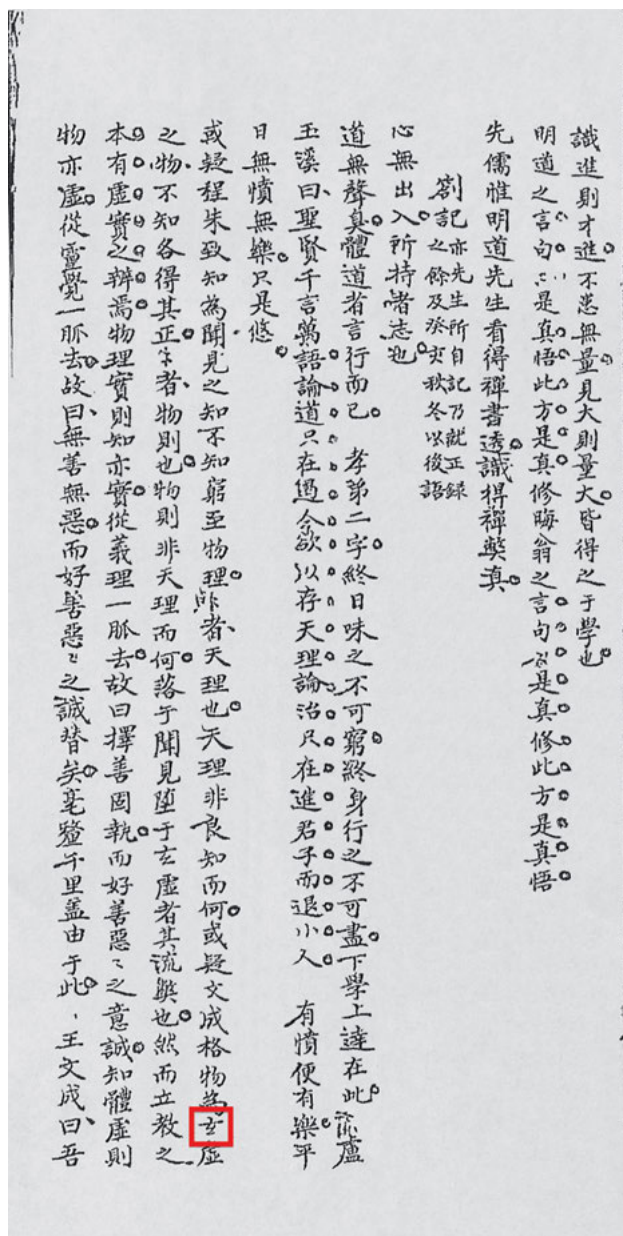 識進則才進不患無量見大則量大皆得之于學也
明道之言句〻是真悟此方是真修晦翁之言句〻是真修此方是真悟
先儒惟明道先生看得禪書透識得禪弊真
劄記亦先生所自記乃就正録
之餘及癸亥秋冬以後語
心無出入所持者志也
道無聲臭體道者言行而已 孝弟二字終日味之不可窮終身行之不可盡下學上達在此 盧
玉溪曰聖賢千言萬語論道只在遏人欲以存天理論治只在進君子而退小人 有憤便有樂平
日無憤無樂只是悠
或疑程朱致知為聞見之知不知窮至物理者天理也天理非良知而何或疑文成格物為玄虛
之物不知各得其正者物則也物則非天理而何落于聞見墮于玄虛者其流弊也然而立教之
本有虛實之辨焉物理實則知亦實從義理一脈去故曰擇善固執而好善惡〻之意誠知體虛則
物亦虛從靈覺一脈去故曰無善無惡而好善惡〻之誠替矣毫釐千里蓋由于此、王文成曰吾